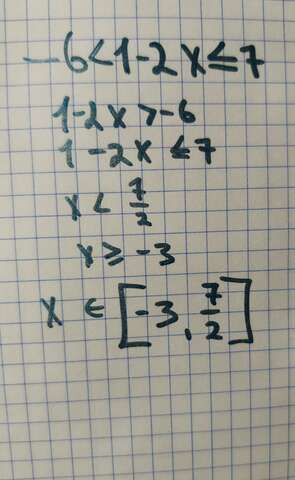 -6<1-2x≤7
1-2x>-6
1-2x≤7
x<7/2
x≥-3
x∈[-3,7/2]